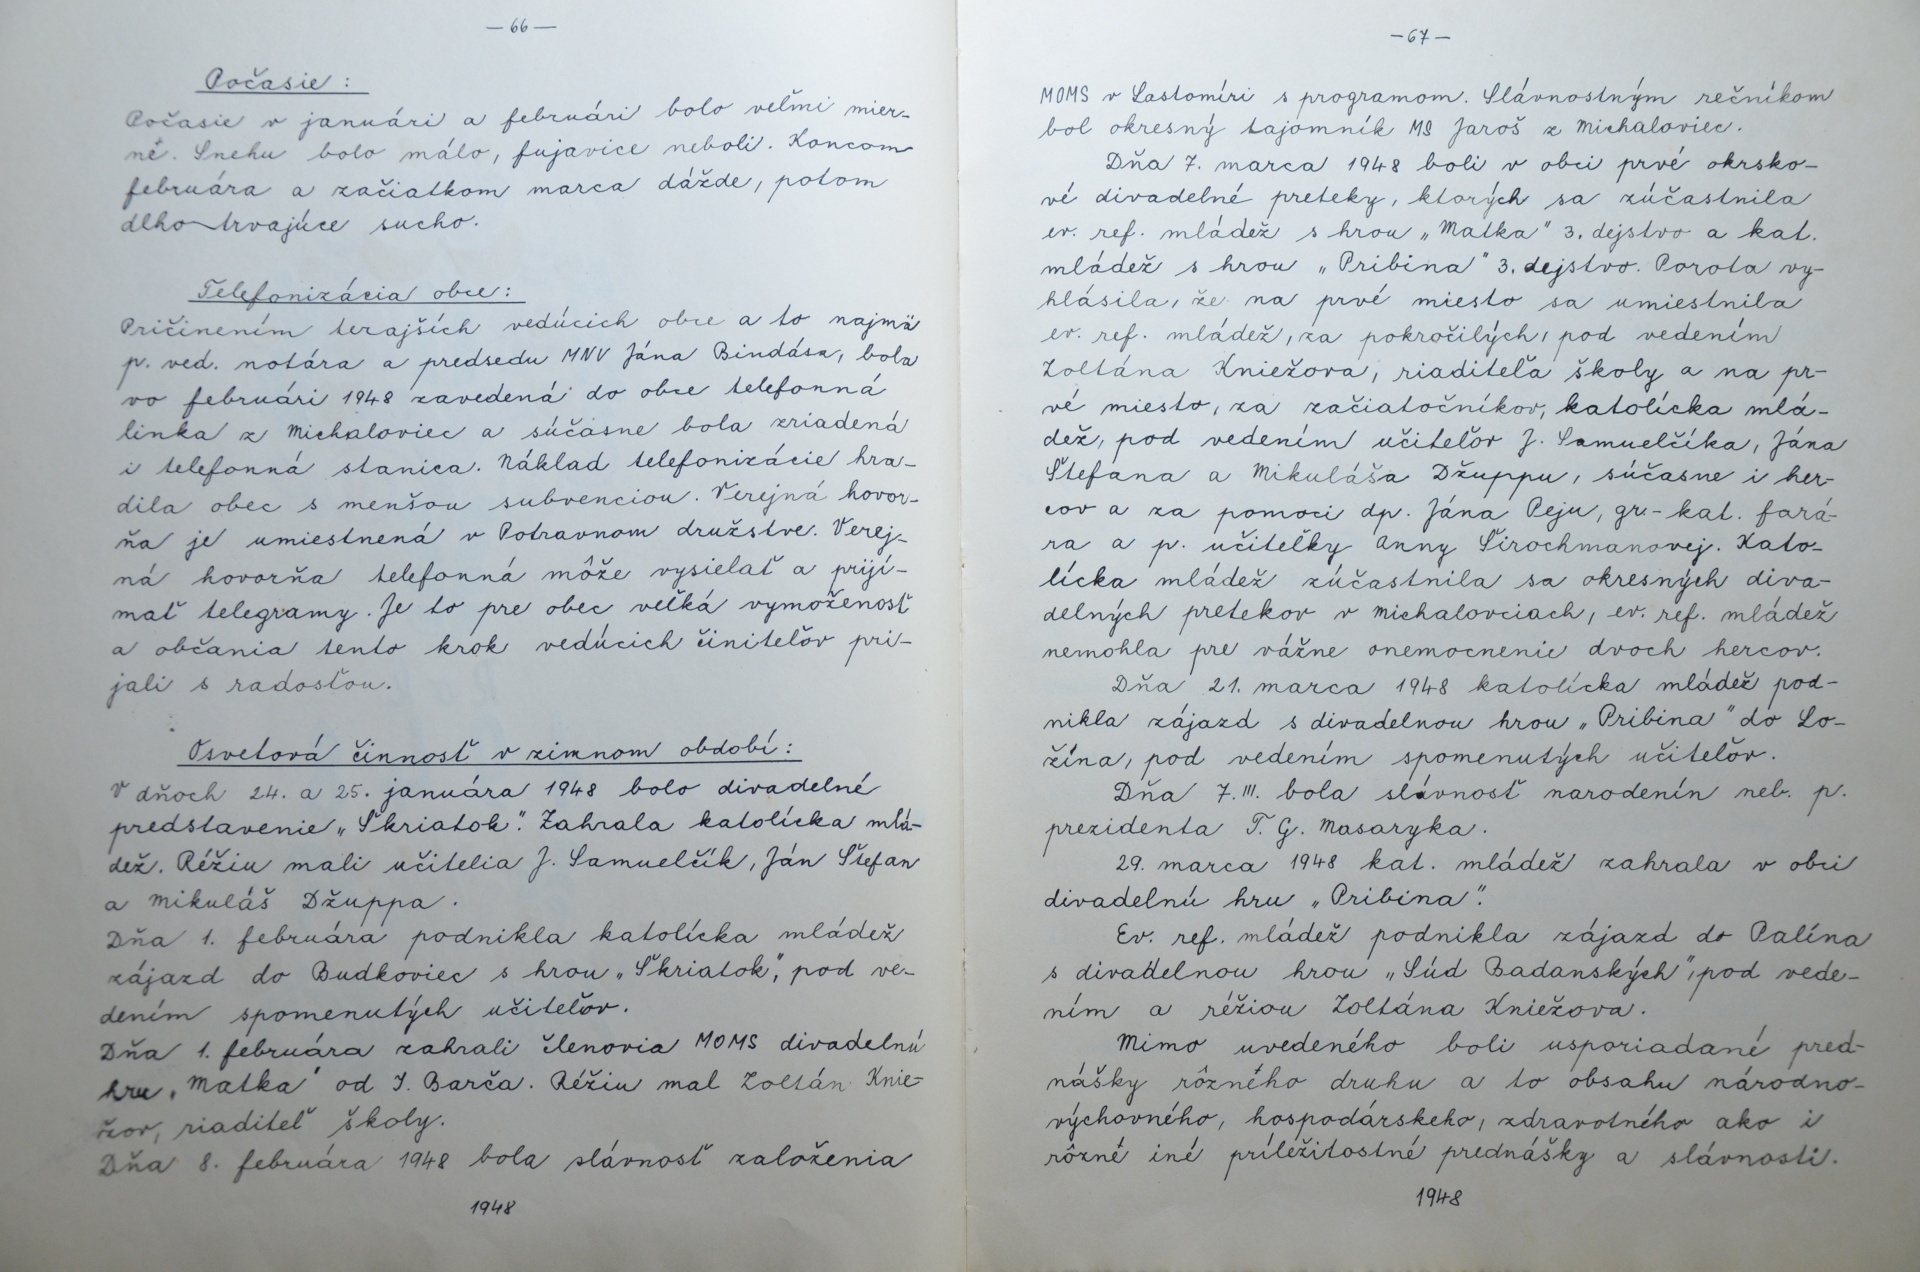 — 66 —
Počasie :
Počasie v januári a februári bolo veľmi mier-
né. Snehu bolo málo, fujavice neboli. Koncom
februára a začiatkom marca dážde, potom
dlho trvajúce sucho.
Telefonizácia obce :
Pričinením terajších vedúcich obce a to najmä
p. ved. notára a predsedu MNV Jána Bindása, bola
vo februári 1948 zavedená do obce telefonná
linka z Michaloviec a súčasne bola zriadená
i telefonná stanica. Náklad telefonizácie hra-
dila obec s menšou subvenciou. Verejná hovor-
ňa je umiestnená v Potravnom družstve. Verej-
ná hovorňa telefonná môže vysielať a prijí-
mať telegramy. Je to pre obec veľká vymoženosť
a občania tento krok vedúcich činiteľov pri-
jali s radosťou.
Osvetová činnosť v zimnom období :
V dňoch 24. a 25. januára 1948 bolo divadelné
predstavenie „Škriatok". Zahrala katolícka mlá-
dež. Réžiu mali učitelia J. Samuelčík, Ján Štefan
a Mikuláš Džuppa .
Dňa 1. februára podnikla katolícka mládež
zájazd do Budkoviec s hrou „Škriatok", pod ve-
dením spomenutých učiteľov.
Dňa 1. februára zahrali členovia MOMS divadelnú
hru „Matka" od I. Barča. Réžiu mal Zoltán Knie-
žov, riaditeľ školy.
Dňa 8. februára 1948 bola slávnosť založenia
1948
— 67 —
MOMS v Lastomíri s programom. Slávnostným rečníkom
bol okresný tajomník MS Jaroš z Michaloviec.
Dňa 7. marca 1948 boli v obci prvé okrsko-
vé divadelné preteky, ktorých sa zúčastnila
ev. ref. mládež s hrou „Matka" 3. dejstvo a kat.
mládež s hrou „Pribina" 3. dejstvo. Porota vy-
hlásila, že na prvé miesto sa umiestnila
ev. ref. mládež, za pokročilých, pod vedením
Zoltána Kniežova, riaditeľa školy a na pr-
vé miesto, za začiatočníkov, katolícka mlá-
dež, pod vedením učiteľov J. Samuelčíka, Jána
Štefana a Mikuláša Džuppu, súčasne i her-
cov a za pomoci dp. Jána Peju, gr.-kat. fará-
ra a p. učiteľky Anny Širochmanovej. Kato-
lícka mládež zúčastnila sa okresných diva-
delných pretekov v Michalovciach, ev. ref. mládež
nemohla pre vážne onemocnenie dvoch hercov.
Dňa 21. marca 1948 katolícka mládež pod-
nikla zájazd s divadelnou hrou „Pribina" do Lo-
žína, pod vedením spomenutých učiteľov.
Dňa 7. III. bola slávnosť narodenín neb. p.
prezidenta T. G. Masaryka.
29. marca 1948 kat. mládež zahrala v obci
divadelnú hru „Pribina".
Ev. ref. mládež podnikla zájazd do Palína
s divadelnou hrou „Súd Badanských", pod vede-
ním a réžiou Zoltána Kniežova.
Mimo uvedeného boli usporiadané pred-
nášky rôzného druhu a to obsahu národno-
výchovného, hospodárskeho, zdravotného ako i
rôzné iné príležitostné prednášky a slávnosti.
1948